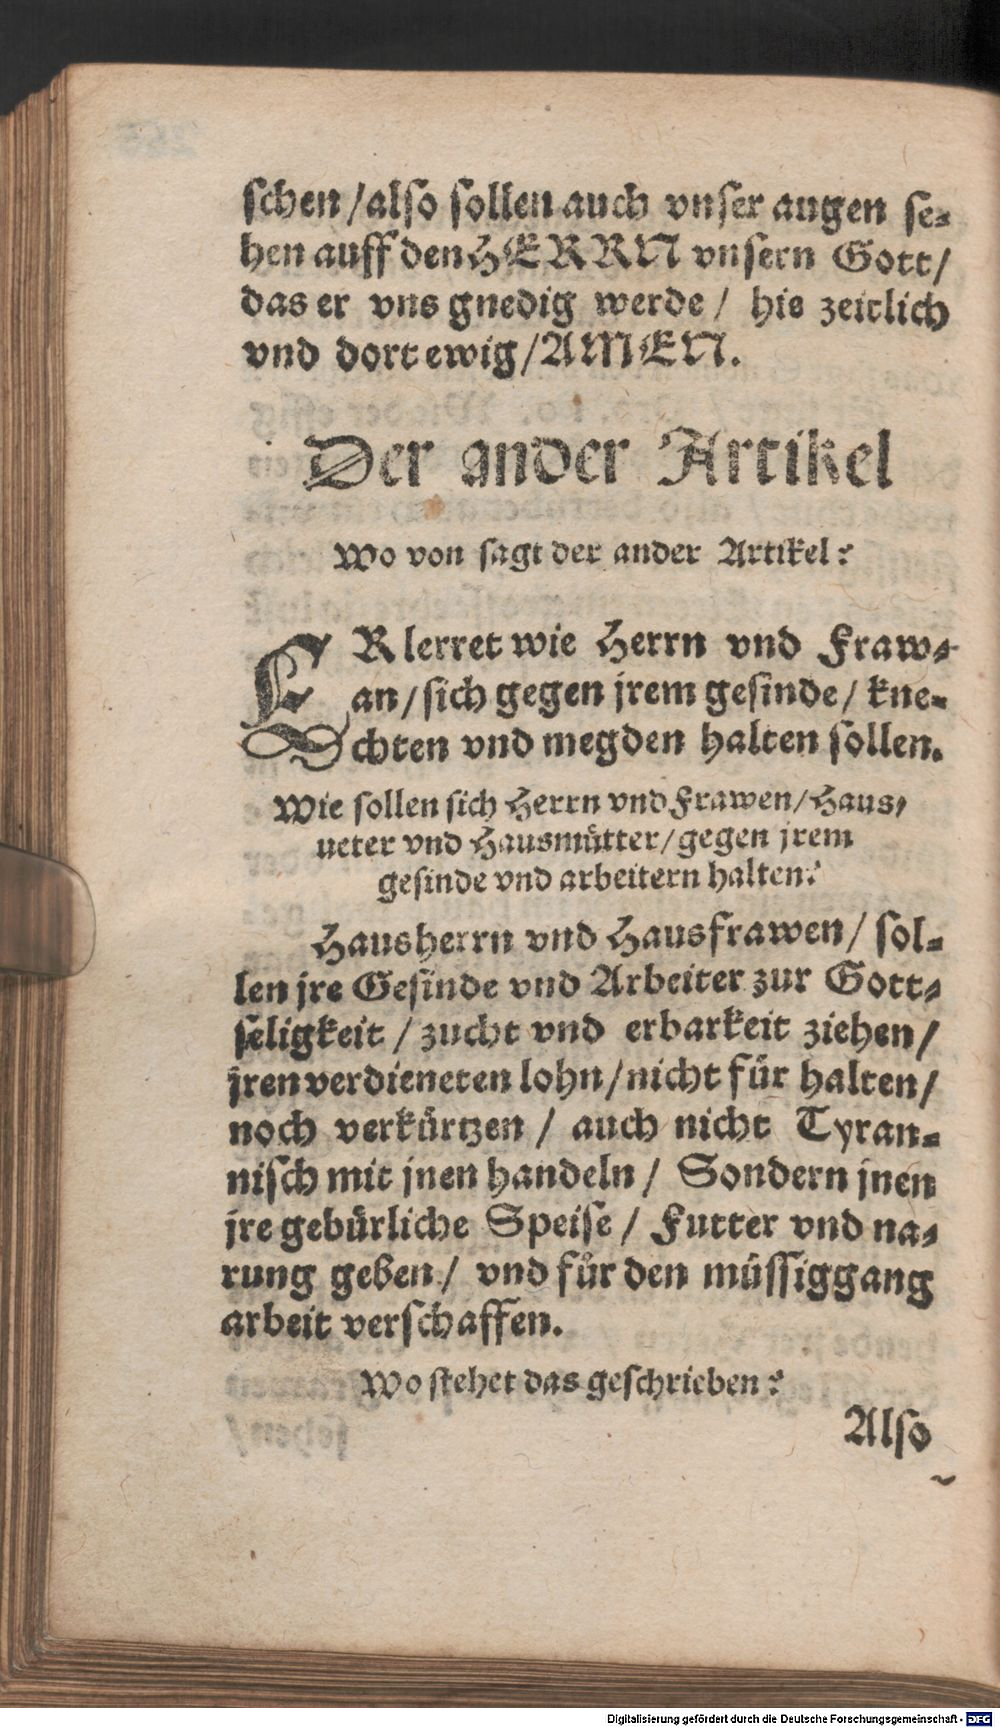 schen / also sollen auch vnser augen se-
hen auff den HERRN vnsern Gott /
das er vns gnedig werde / hie zeitlich
vnd dort ewig / AMEN.
Der ander Artikel
Wo von sagt der ander Artikel?
ER lerret wie Herrn vnd Fraw-
an / sich gegen jrem gesinde / kne-
chten vnd megden halten sollen.
Wie sollen sich Herrn vnd Frawen / Haus-
ueter vnd Hausmütter / gegen jrem
gesinde vnd arbeitern halten?
Hausherrn vnd Hausfrawen / sol-
len jre Gesinde vnd Arbeiter zur Gott-
seligkeit / zucht vnd erbarkeit ziehen /
jren verdieneten lohn / nicht für halten /
noch verkürtzen / auch nicht Tyran-
nisch mit jnen handeln / Sondern jnen
jre gebürliche Speise / Futter vnd na-
rung geben / vnd für den müssiggang
arbeit verschaffen.
Wo stehet das geschrieben?
Also
Digitalisierung gefördert durch die Deutsche Forschungsgemeinschaft - DFG